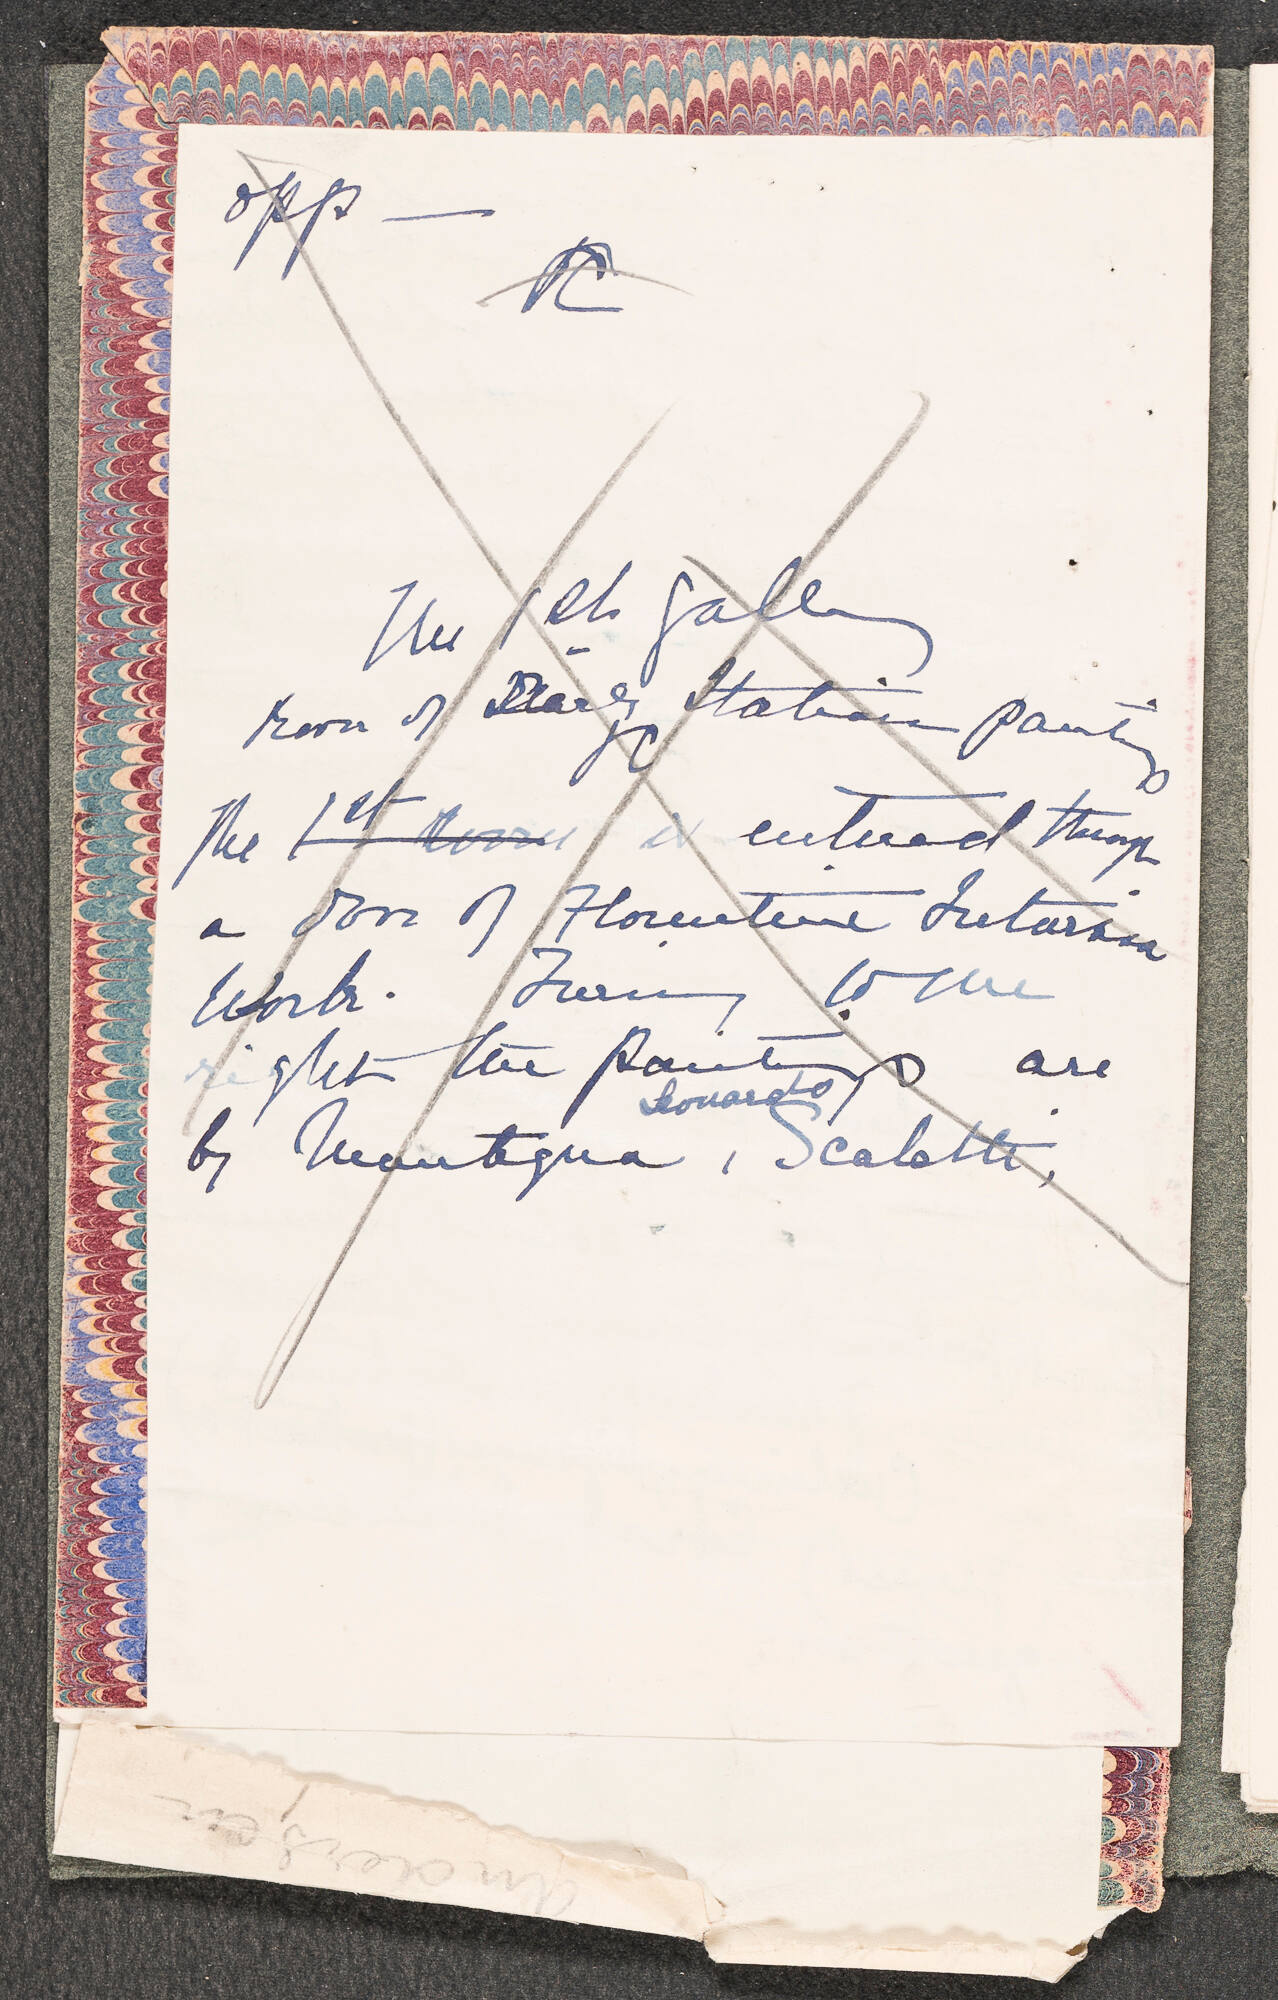 opp —
The 1st Gallery
Room of Early Italian paintings
The 1st Room is entered through
a door of Florentine Intarsia
Work. Turning to the
right the paintings are
Leonardo
by Mantegna, Scaletti,
Andersen